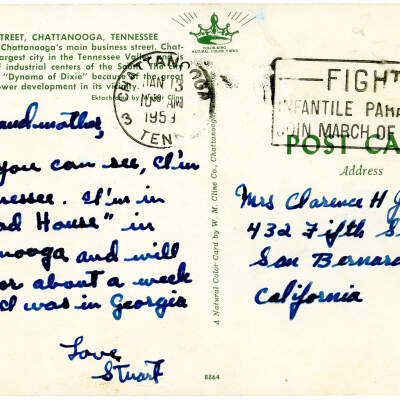 STREET, CHATTANOOGA, TENNESSEE
Chattanooga's main business street. Chat-
largest city in the Tennessee Valley and
of industrial centers of the South. The City
"Dynamo of Dixie" because of the great
power development in its vicinity.
Ektachrome by W.
COLOR-KING
NATURAL COLOR VIEWS
CHATTANOOGA
JAN 13
AM
1959
3 TENN.
FIGHT
INFANTILE PARA
JOIN MARCH OF
POST CA
Address
andmother,
you can see, I'm
nessee. I'm in
ad House" in
nooga and will
or about a week
I was in Georgia
Love
Stuart
A Natural Color Card by W. M. Cline Co., Chattanooga
Mrs Clarence H J
432 Fifth S
San Bernard
California
8864